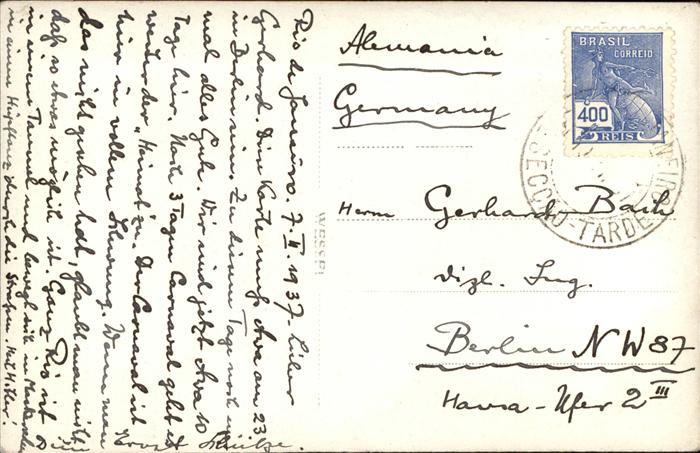 Rio de Janeiro. 7. II. 1937. Lieber
Gerhard. Die Karte muss etwa am 23
in Berlin sein. Zu diesem Tage noch
mal alles Gute. Wir sind jetzt etwa 10
Tage hier. Noch 3 Tage Carnaval geht es
weiter der Heimat zu. Der Carnaval ist
hier in vollem Schwung. Wenn man
das nicht gesehen hat, glaubt man nicht
daß so etwas möglich ist. Ganz Rio ist
in einem Taumel und bewegt sich im
in einem durch die Straßen.
Ernst
Alemania
Germany
BRASIL
CORREIO
400
REIS
SECÇÃO-TARDE
WESSEL
Herrn Gerhard Bach
Dipl. Ing.
Berlin NW87
Hansa-Ufer 2 III